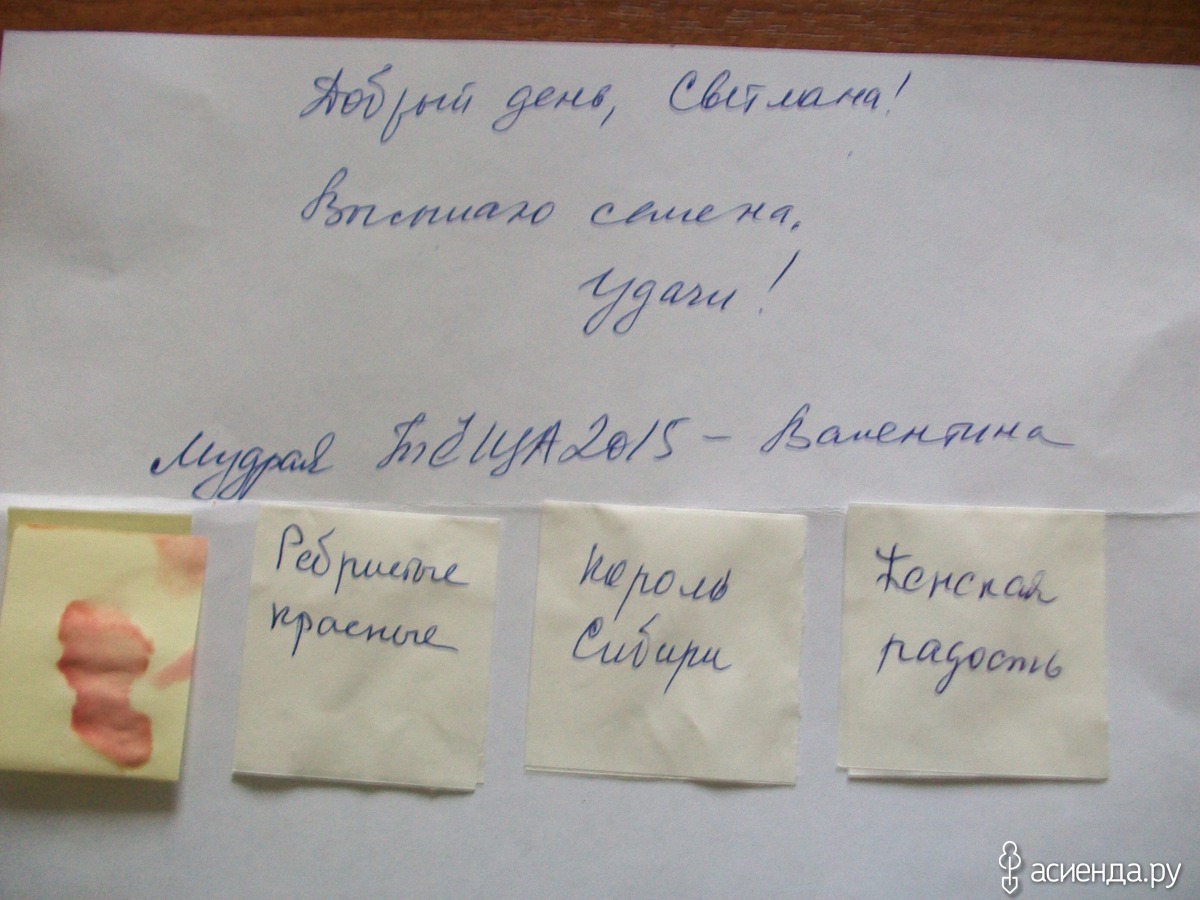 Добрый день, Светлана!
Высылаю семена.
Удачи!
Мудрая ТЁЩА2015 – Валентина
Ребристые
красные
Король
Сибири
Женская
радость
асиенда.ру